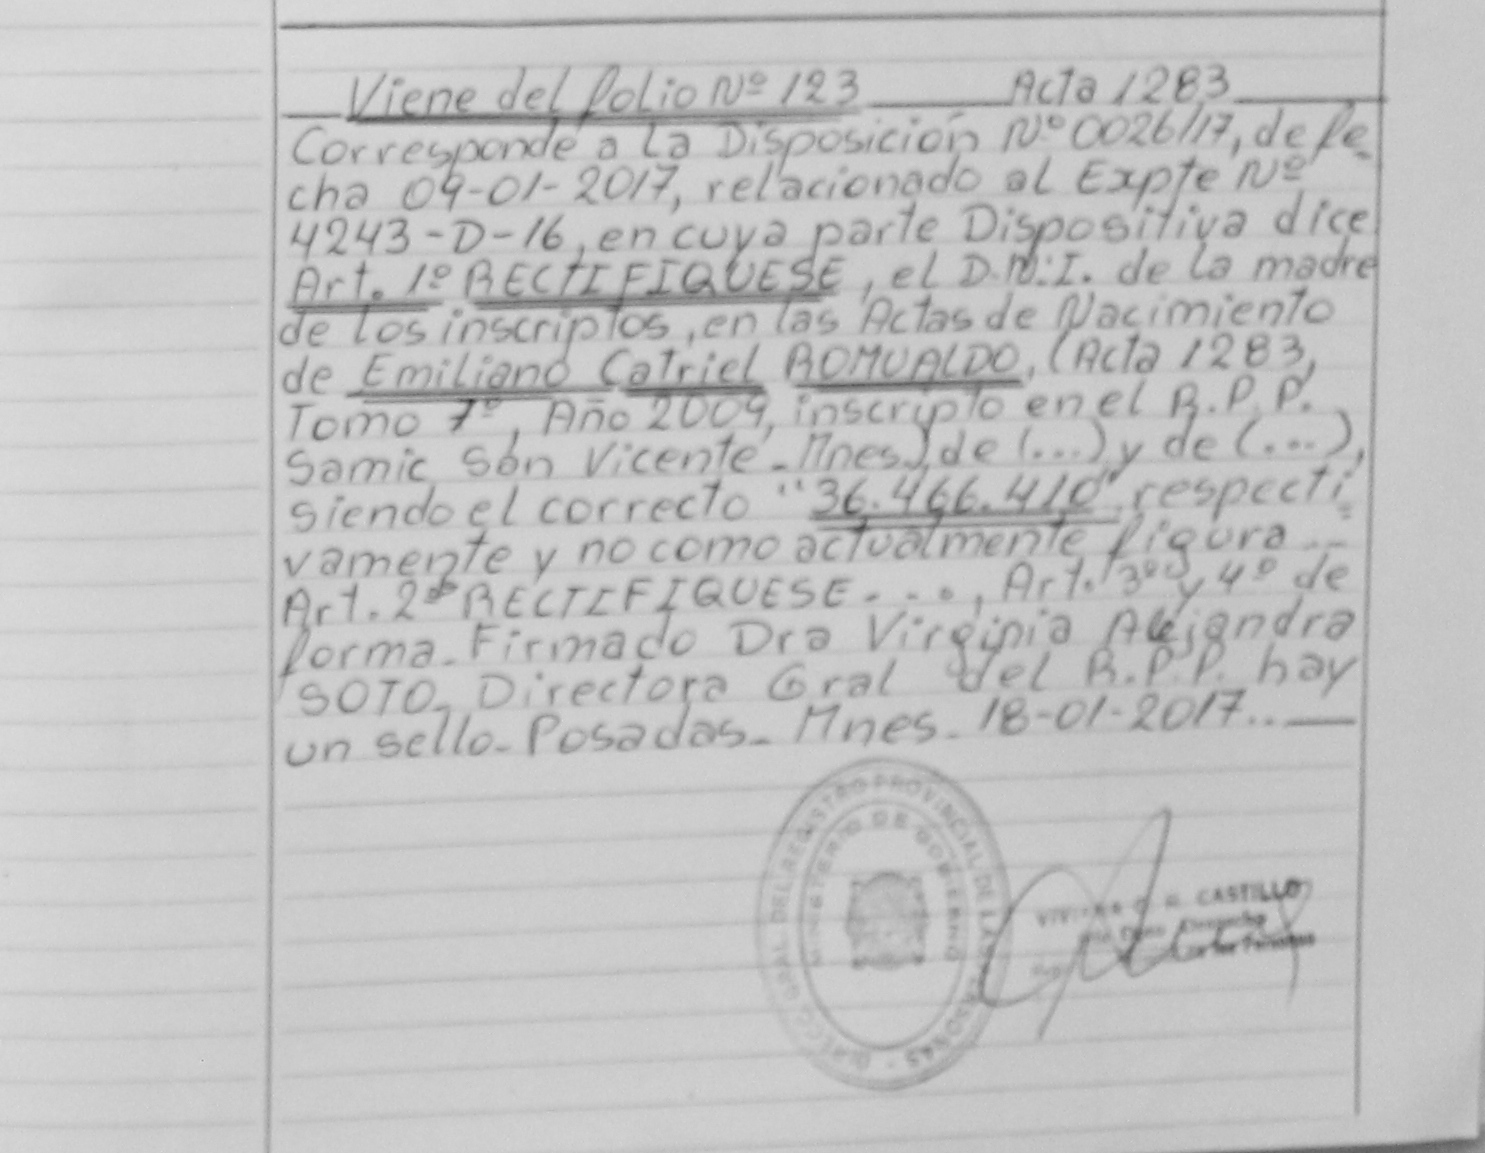 Viene del folio Nº 123 Acta 1283
Corresponde a la Disposición Nº 0026/17, de fe-
cha 09-01-2017, relacionado al Expte Nº
4243-D-16, en cuya parte Dispositiva dice
Art. 1º RECTIFIQUESE, el D.N.I. de la madre
de los inscriptos, en las Actas de Nacimiento
de Emiliano Catriel ROMUALDO, (Acta 1283,
Tomo 7º, Año 2009, inscripto en el R.P.P.
Samic San Vicente - Mnes), de (...) y de (...),
siendo el correcto "36.466.410" respecti-
vamente y no como actualmente figura...
Art. 2º RECTIFIQUESE...., Art. 3º y 4º de
forma. Firmado Dra Virginia Alejandra
SOTO. Directora Gral del R.P.P. hay
un sello. Posadas. Mnes. 18-01-2017..
DIRECC. GRAL DEL REGISTRO PROVINCIAL DE LAS PERSONAS
MINISTERIO DE GOBIERNO
CASTILLO
Despacho